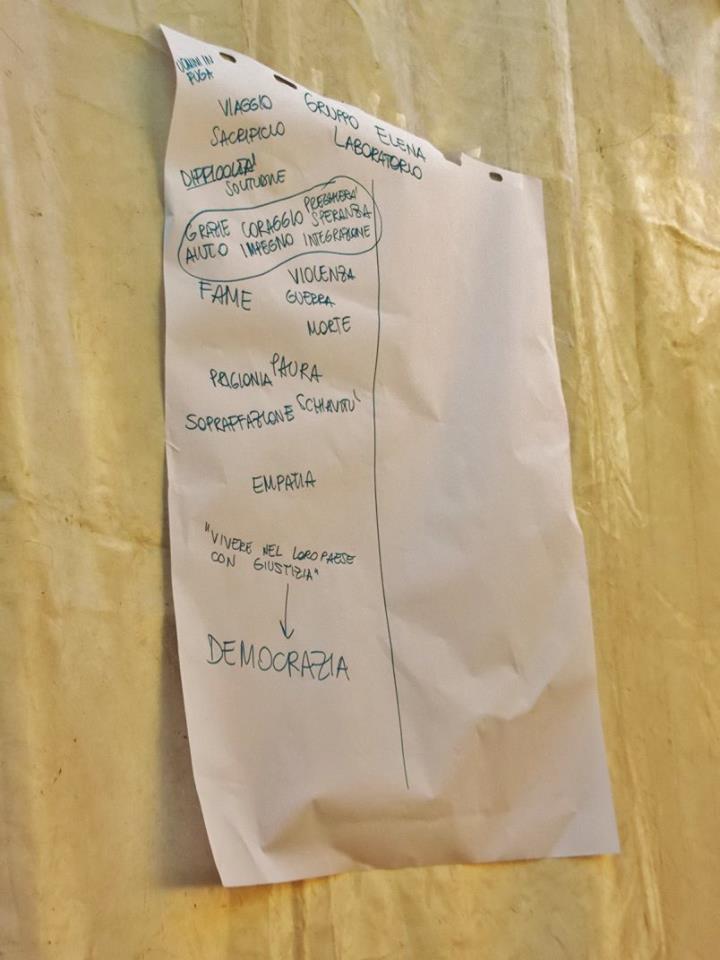 UOMINI IN
FUGA
GRUPPO ELENA
LABORATORIO
VIAGGIO
SACRIFICIO
DIFFICOLTA'
SOLUZIONE
PREGHIERA
GRAZIE CORAGGIO SPERANZA
AIUTO IMPEGNO INTEGRAZIONE
VIOLENZA
FAME GUERRA
MORTE
PRIGIONIA PAURA
SOPRAFFAZIONE SCHIAVITU'
EMPATIA
"VIVERE NEL LORO PAESE
CON GIUSTIZIA"
DEMOCRAZIA